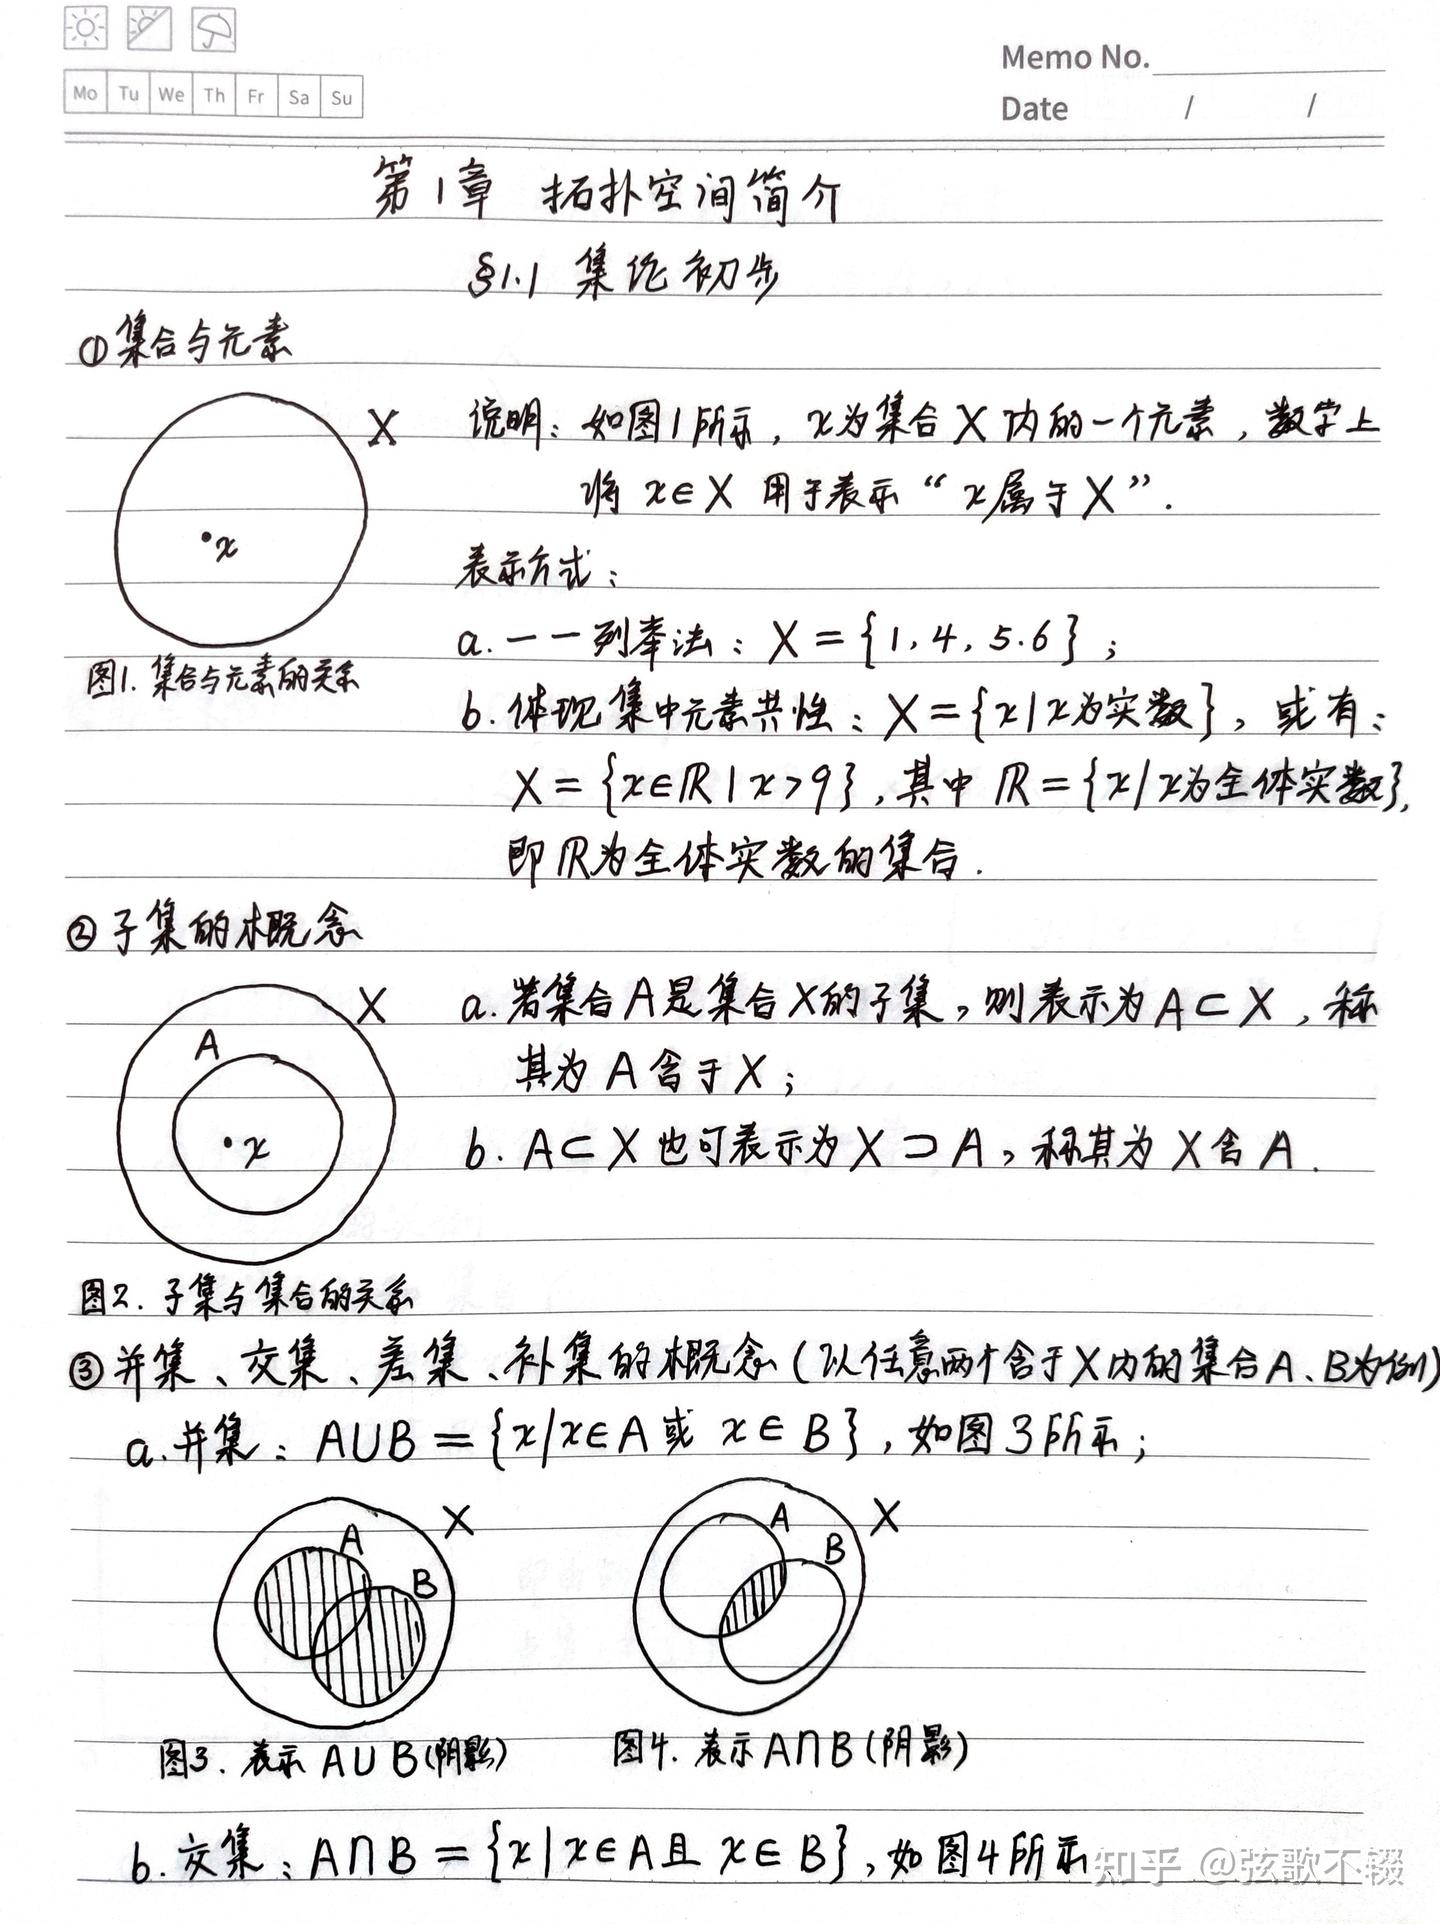 Memo No.
Mo Tu We Th Fr Sa Su
Date / /
第1章 拓扑空间简介
§1.1 集论初步
①集合与元素
X
x
图1. 集合与元素的关系
说明：如图1所示，x为集合X内的一个元素，数学上
将 x∈X 用于表示“x属于X”.
表示方式：
a. 一一列举法：X={1,4,5.6}；
b. 体现集中元素共性：X={x|x为实数}，或有：
X={x∈ℝ|x>9}，其中ℝ={x|x为全体实数}，
即ℝ为全体实数的集合.
②子集的概念
X
A
x
图2. 子集与集合的关系
a. 若集合A是集合X的子集，则表示为A⊂X，称
其为A含于X；
b. A⊂X也可表示为X⊃A，称其为X含A.
③并集、交集、差集、补集的概念(以任意两个含于X内的集合A、B为例)
a. 并集：A∪B={x|x∈A或 x∈B}，如图3所示；
X
A
B
图3. 表示A∪B(阴影)
X
A
B
图4. 表示A∩B(阴影)
b. 交集：A∩B={x|x∈A且 x∈B}，如图4所示
知乎 @弦歌不辍